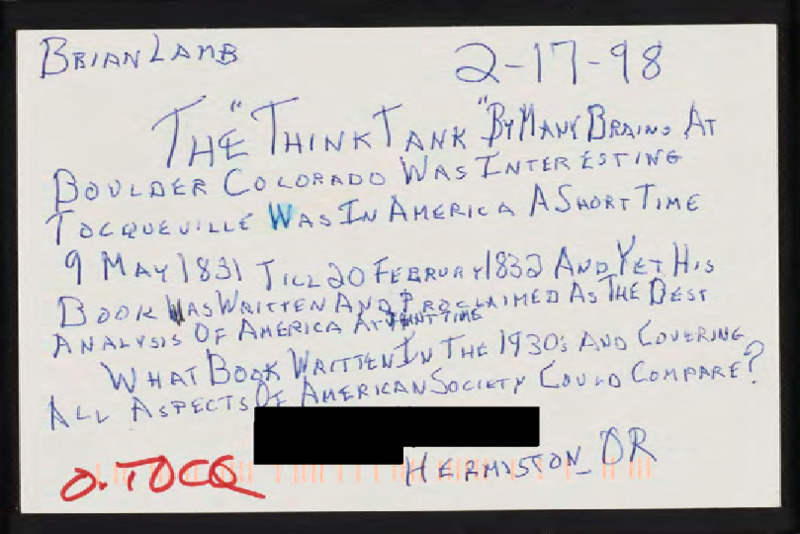 BRIAN LAMB 2-17-98
THE "THINK TANK" BY MANY BRAINS AT
BOULDER COLORADO WAS INTERESTING
TOCQUEVILLE WAS IN AMERICA A SHORT TIME
9 MAY 1831 TILL 20 FEBRURY 1832 AND YET HIS
BOOK WAS WRITTEN AND PROCLAIMED AS THE BEST
ANALYSIS OF AMERICA AT THAT TIME
WHAT BOOK WRITTEN IN THE 1930s AND COVERING
ALL ASPECTS OF AMERICAN SOCIETY COULD COMPARE?
HERMISTON OR
O. TOCQ